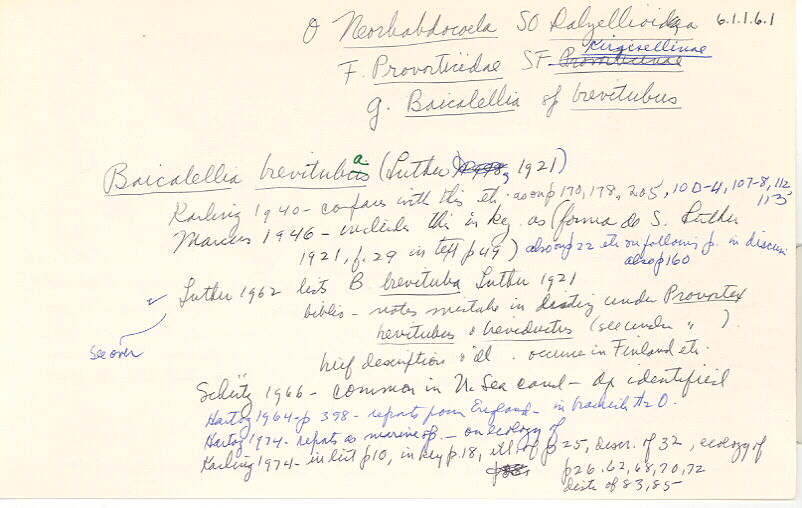 O Neorhabdocoela SO Dalyellioidea 6.1.1.6.1
Kirgisellinae
F. Provorticidae SF Provorticinae
g. Baicalellia sp brevitubus
Baicalellia brevituba (Luther, 1921)
Karling 1940 - compares with this etc. also on p 170, 178, 205, 100-4, 107-8, 112
113
Marcus 1946 - includes this in key as (forma de S. Luther
1921, f. 29 in text p 49) also on p 22 etc on following p. in discuss
also p 160
Luther 1962 lists B. brevituba Luther 1921
biblio - notes mistake in listing under Provortex
brevitubus & breviductus (see under " ).
See over
brief description & ill. occurrence in Finland etc.
Schütz 1966 - common in N. Sea canal -
identified
Hartog 1964 - p 398 - reports from England - in brackish H2O.
Hartog 1974 - reports as marine sp. - on ecology of
Karling 1974 - in list p 10, in key p. 18, ill of p 25, descr. of 32, ecology of
p 26, 62, 68, 70, 72
distr of 83, 85